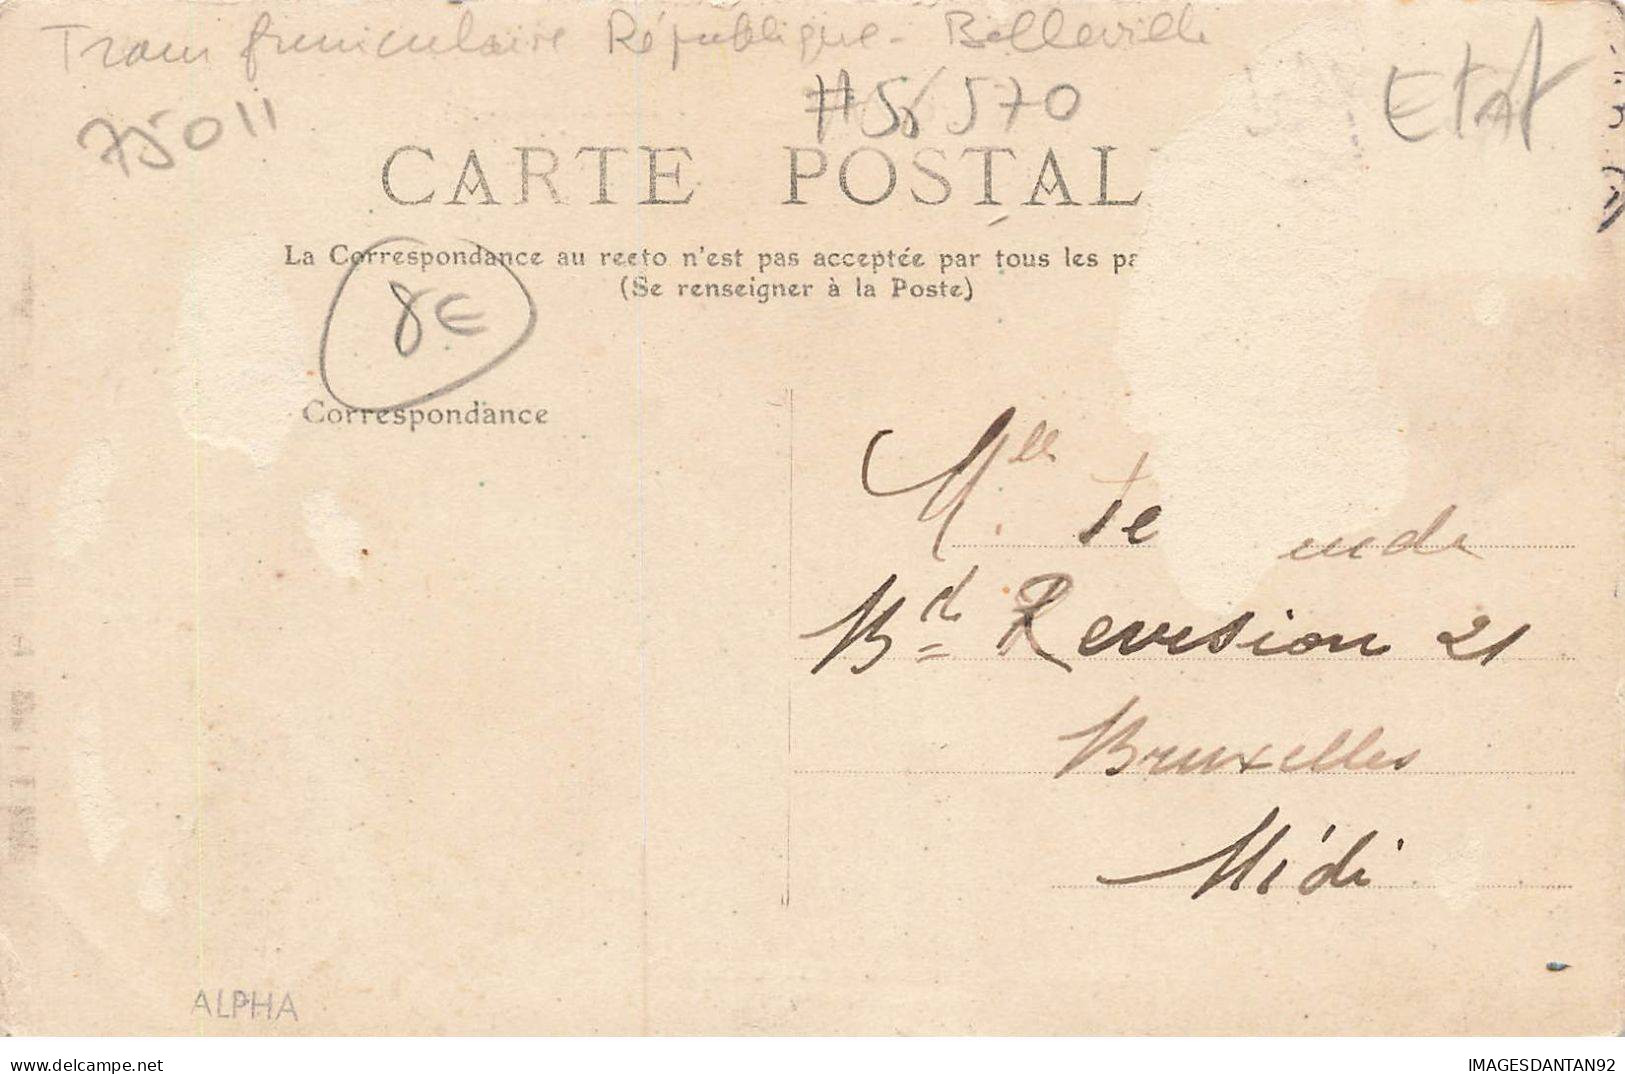 Tram funiculaire République - Belleville
75011
#56570
ETAT
CARTE POSTAL
La Correspondance au recto n'est pas acceptée par tous les pa
(Se renseigner à la Poste)
8€
Correspondance
Mlle Te
Bd Revision 21
Bruxelles
Midi
ALPHA
delcampe.net
IMAGESDANTAN92